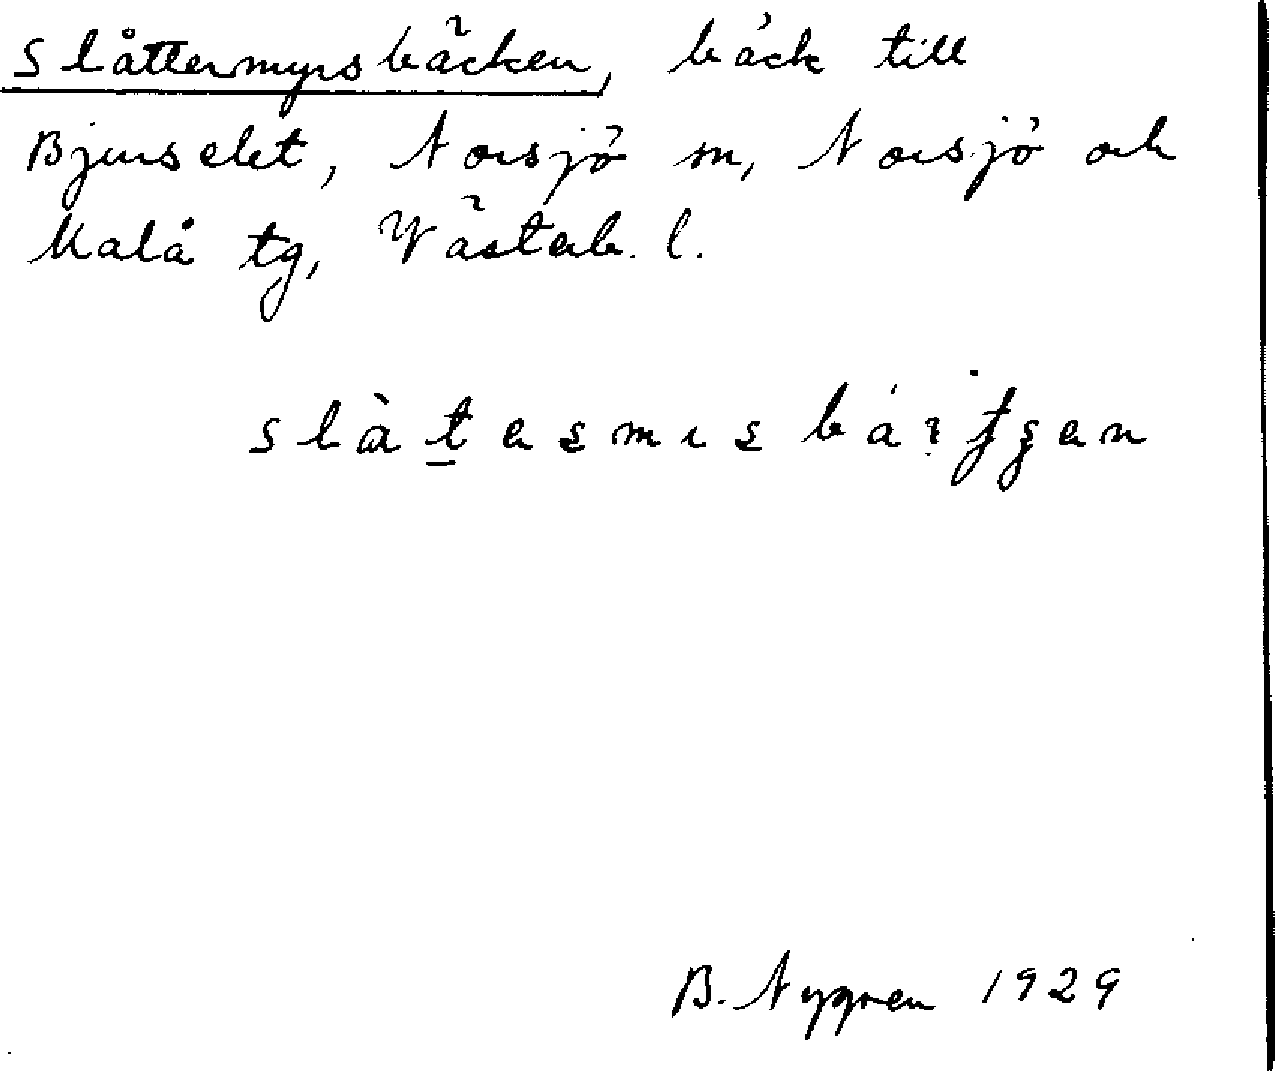 Slåttermyrsbäcken, bäck till
Bjurselet, Norsjö sn, Norsjö och
Malå tg, Västerb. l.
B. Nygren 1929